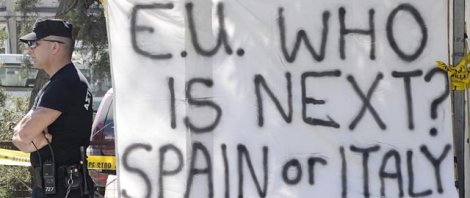 E.U. WHO
IS NEXT?
SPAIN or ITALY